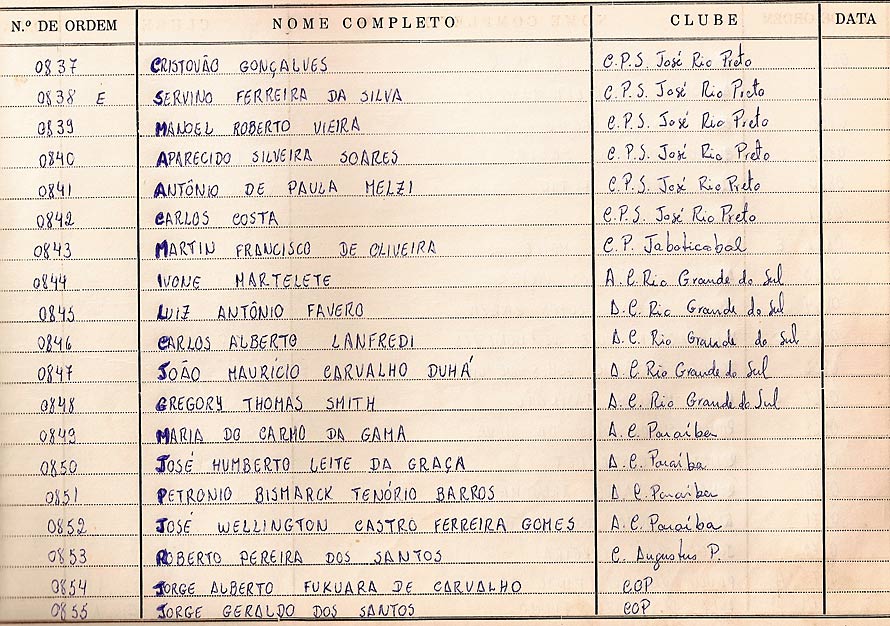 N.º DE ORDEM NOME COMPLETO CLUBE DATA
0837 CRISTOVÃO GONÇALVES C.P.S. José Rio Preto
0838 E SERVINO FERREIRA DA SILVA C.P.S. José Rio Preto
0839 MANOEL ROBERTO VIEIRA C.P.S. José Rio Preto
0840 APARECIDO SILVEIRA SOARES C.P.S. José Rio Preto
0841 ANTÔNIO DE PAULA MELZI C.P.S. José Rio Preto
0842 CARLOS COSTA C.P.S. José Rio Preto
0843 MARTIN FRANCISCO DE OLIVEIRA C.P. Jaboticabal
0844 IVONE MARTELETE A.C. Rio Grande do Sul
0845 LUIZ ANTÔNIO FAVERO A.C. Rio Grande do Sul
0846 CARLOS ALBERTO LANFREDI A.C. Rio Grande do Sul
0847 JOÃO MAURÍCIO CARVALHO DUHÁ A.C. Rio Grande do Sul
0848 GREGORY THOMAS SMITH A.C. Rio Grande do Sul
0849 MARIA DO CARMO DA GAMA A.C. Paraíba
0850 JOSÉ HUMBERTO LEITE DA GRAÇA A.C. Paraíba
0851 PETRONIO BISMARCK TENÓRIO BARROS A.C. Paraíba
0852 JOSÉ WELLINGTON CASTRO FERREIRA GOMES A.C. Paraíba
0853 ROBERTO PEREIRA DOS SANTOS C. Augustus P.
0854 JORGE ALBERTO FUKUARA DE CARVALHO COP
0855 JORGE GERALDO DOS SANTOS COP